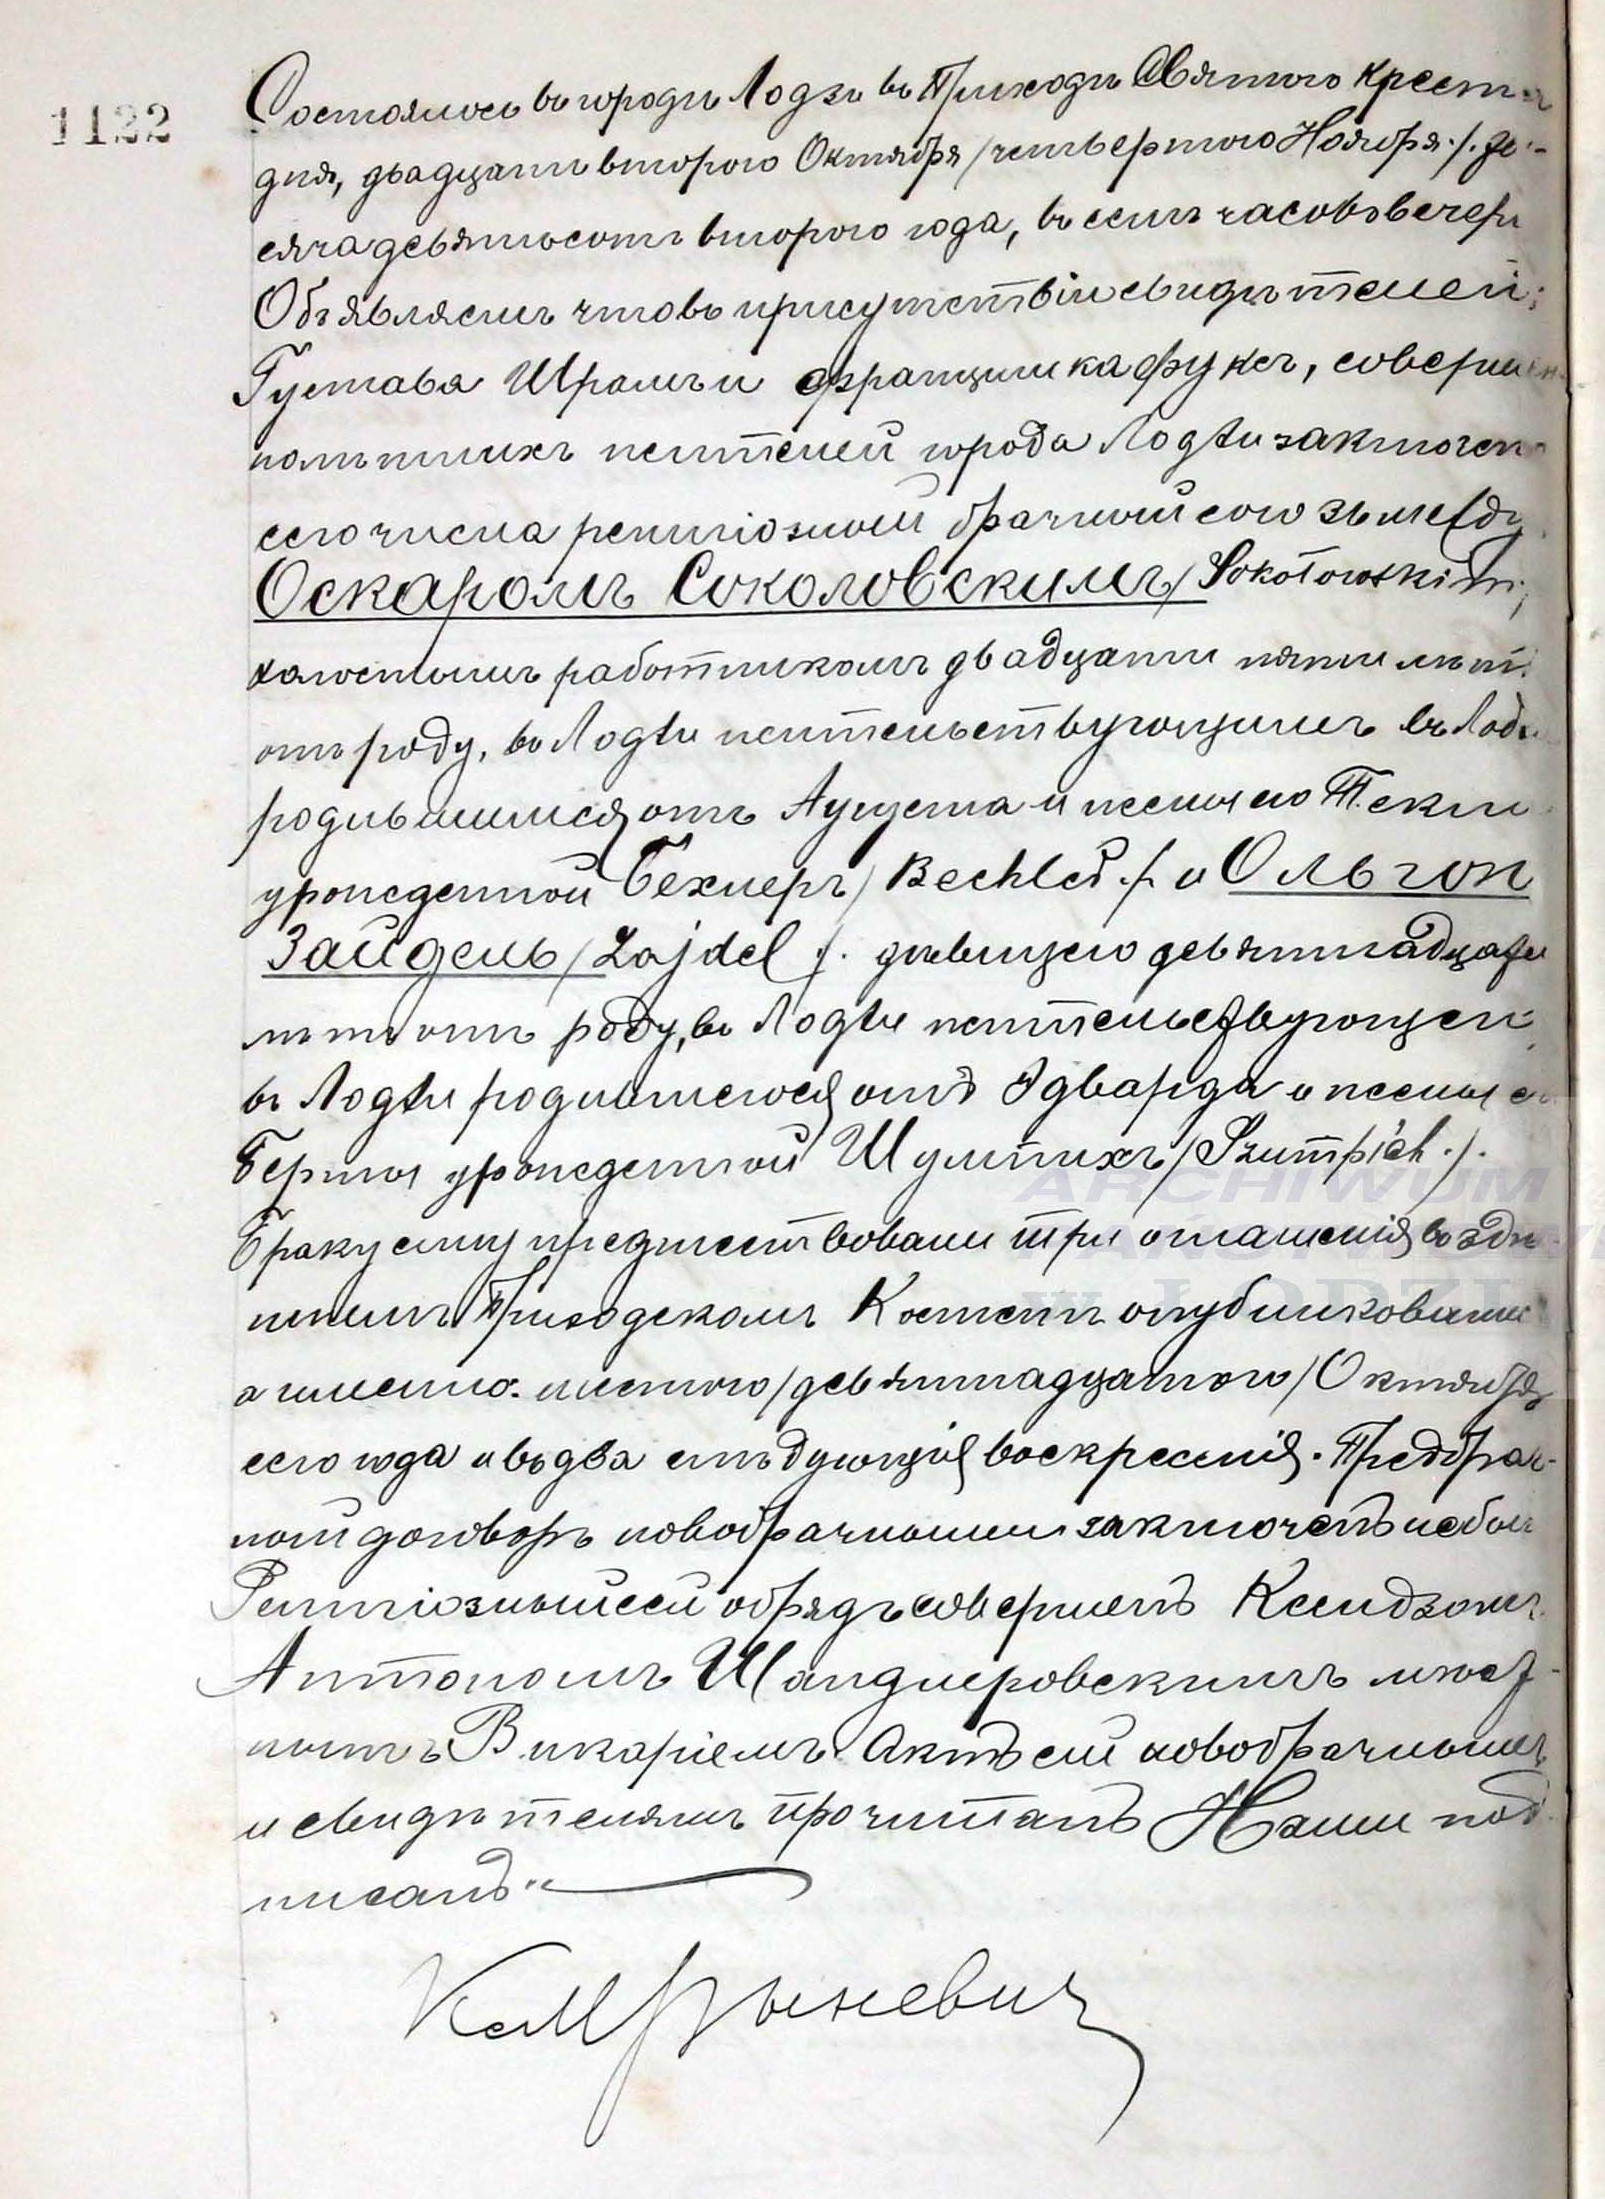 1122
Состоялось въ городѣ Лодзи въ Приходѣ Святого Креста
дня, двадцать второго Октября /четвертого Ноября./. ты-
сяча девятьсотъ второго года, въ семь часовъ вечера
Объявляемъ что въ присутствіи свидѣтелей:
Густава Шрамъ и Францишка Фуксъ, совершен-
нолѣтнихъ жителей города Лодзи заключенъ
сего числа религіозный брачный союзъ между
Оскаромъ Соколовскимъ /Sokołowskim/
холостымъ работникомъ двадцати пяти лѣтъ
отъ роду, въ Лодзи жительствующимъ въ Лодзи
родившимся отъ Августа и жены его Текли
урожденной Бехлеръ /Bechler ./. и Ольгою
Зайдель /Zajdel ./. дѣвицею девятнадцати
лѣтъ отъ роду, въ Лодзи жительствующей
въ Лодзи родившеюся отъ Эдварда и жены его
Берты урожденной Шумпихъ /Szumpich ./.
Браку сему предшествовали три оглашенія въ здѣ-
шнемъ Приходскомъ Костелѣ опубликованные
а именно: шестого /девятнадцатого/ Октября
сего года и въ два слѣдующія воскресенія. Предбрач-
ный договоръ новобрачными заключенъ небылъ
Религіозный сей обрядъ совершенъ Ксендзомъ
Антономъ Шандлеровскимъ мѣст-
нымъ Викаріемъ. Актъ сей новобрачнымъ
и свидѣтелямъ прочитанъ Нами под-
писанъ.
ARCHIWUM
W ŁODZI